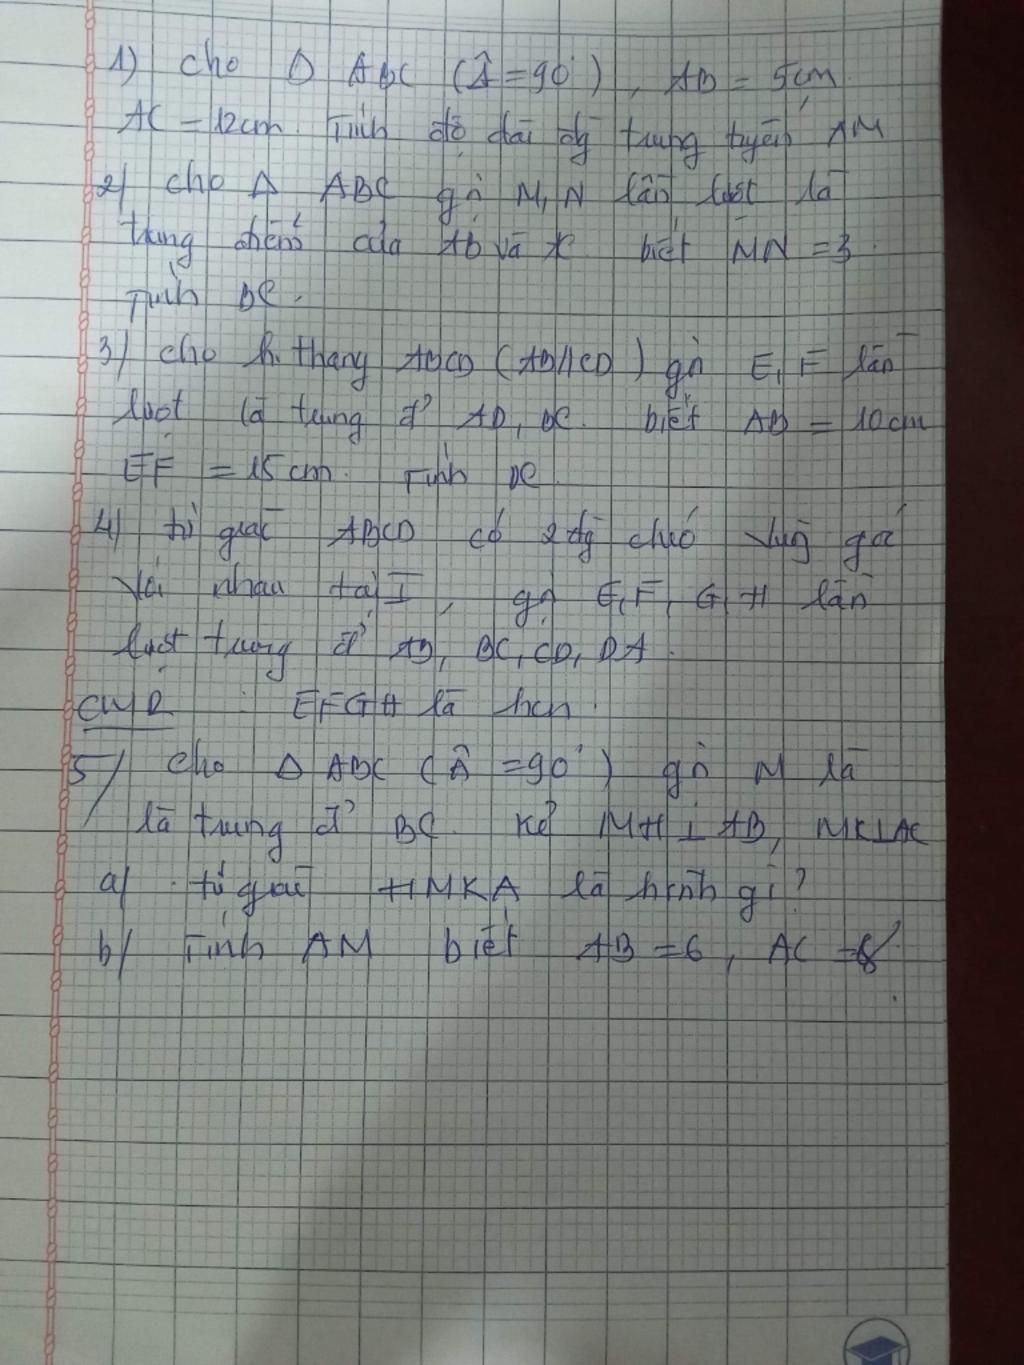 1) cho Δ ABC (Â = 90°), AB = 5cm
AC = 12cm. Tính độ dài đg trung tuyến AM
2) cho Δ ABC gọi M, N lần lượt là
trung điểm của AB và AC biết MN = 3.
Tính BC.
3) cho h. thang ABCD (AB//CD) gọi E, F lần
lượt là trung đ' AD, BC. biết AB = 10cm
EF = 15cm. Tính DC.
4) tứ giác ABCD có 2 đg chéo vuông góc
với nhau tại I, gọi E, F, G, H lần
lượt trung đ' AB, BC, CD, DA.
CMR : EFGH là hcn.
5) cho Δ ABC (Â = 90°) gọi M là
là trung đ' BC. Kẻ MH ⊥ AB, MK⊥AC
a) tứ giác HMKA là hình gì?
b) Tính AM biết AB = 6, AC = 8